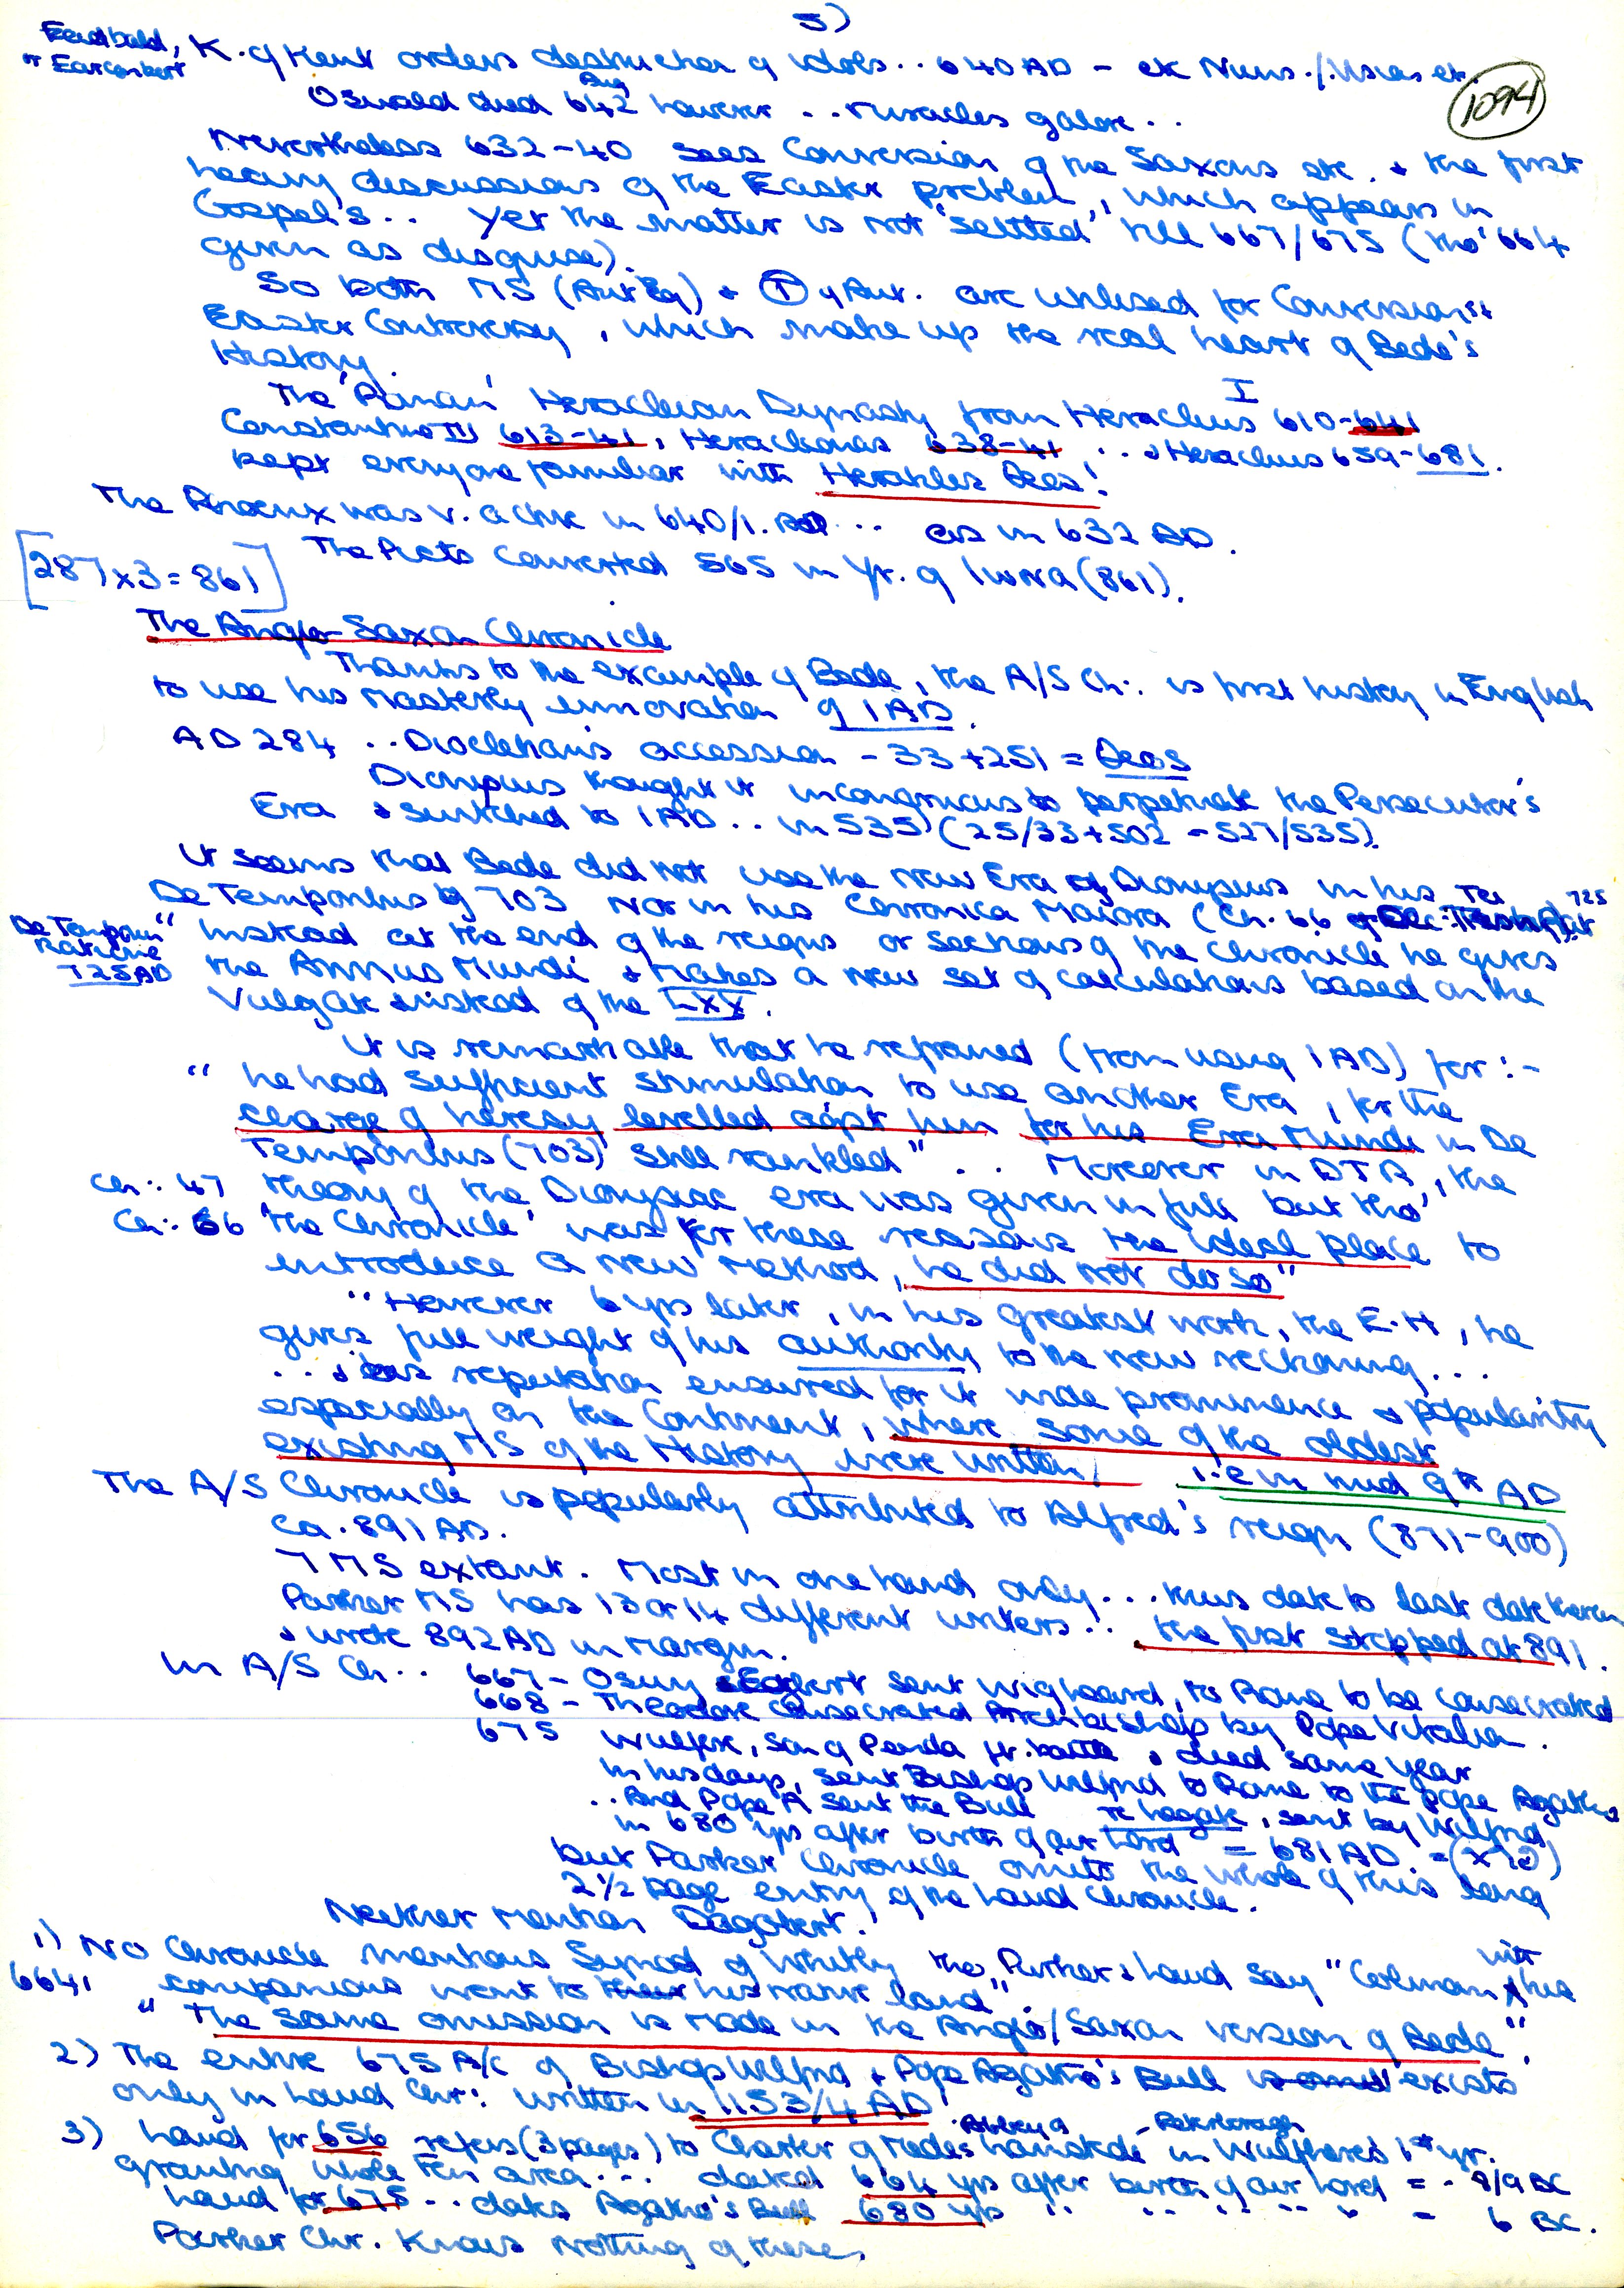 5)
Eeadbald, K. of Kent orders destruction of idols .. 640 AD - ex Nums./
or Earconbert
Oswald died Aug 642 however .. miracles galore ..
1094
Nevertheless 632-40 sees Conversion of the Saxons etc. & the first
heavy discussions of the Easter problem, which appears in
Gospels .. Yet the matter is not 'settled' till 667/675 (tho' 664
given as disguise).
So both MS (Ant Eq) & T of Ant. are utilised for Conversion &
Easter Controversy, which make up the real heart of Bede's
History.
The 'Roman' Heraclian Dynasty from Heraclius I 610-641
Constantine III 613-41, Heraclonas 638-41 ... & Heraclius 659-681.
kept everyone familiar with Herakles
The Phoenix was v. active in 640/1. AD .. as in 632 AD.
[287x3=861]
The Picts converted 565 in Yr. of (861).
The Anglo-Saxon Chronicle
Thanks to the example of Bede, the A/S Ch: is first history in English
to use his masterly innovation of 1 AD.
AD 284 .. Diocletian's accession - 33+251 =
Dionysius thought it incongruous to perpetuate the Persecutor's
Era & switched to 1 AD .. in 535 (25/33+502 = 527/535).
It seems that Bede did not use the New Era of Dionysius in his
De Temporibus of 703 nor in his Chronica Maiora (Ch. 66 725
De Temporum
Ratione
725 AD
"Instead at the end of the reigns or sections of the Chronicle he gives
the Annus Mundi & makes a new set of calculations based on the
Vulgate instead of the LXX.
It is remarkable that he refrained (from using 1 AD) for :-
"he had sufficient stimulation to use another Era, for the
charge of heresy levelled agst him for his Era Mundi in De
Temporibus (703) still rankled" .. Moreover in DTR, the
Ch: 47 theory of the Dionysiac era was given in full but tho'
Ch: 66 'the Chronicle' was for these reasons the ideal place to
introduce a new method, he did not do so"
"However 6 yrs later, in his greatest work, the E.H, he
gives full weight of his authority to the new reckoning ...
... & his reputation ensured for it wide prominence & popularity
especially on the Continent, where some of the oldest
existing MS of the History were written / i.e in mid 9th AD
The A/S Chronicle is popularly attributed to Alfred's reign (871-900)
ca. 891 AD.
7 MS extant. Most in one hand only ... thus date to last date therein
Parker MS has 13 or 14 different writers .. the first stopped at 891.
& wrote 892 AD in margin.
In A/S Ch .. 667 - Oswy & Egbert sent Wigheard, to Rome to be consecrated
668 - Theodore consecrated Archbishop by Pope Vitalian.
675 Wulfere, son of Penda battle & died same year
In his days, sent Bishop Wilfrid to Rome to the Pope Agatho
.. And Pope A sent the Bull , sent by Wilfrid
in 680 yrs after birth of our Lord = 681 AD.
but Parker Chronicle omits the whole of this long
2½ page entry of the Laud Chronicle.
Neither mention Dagobert.
1) No Chronicle mentions Synod of Whitby tho' Parker & Laud say "Colman with his
664, companions went to his native land".
"The same omission is made in the Anglo/Saxon version of Bede".
2) The entire 675 A/c of Bishop Wilfrid & Pope Agatho's Bull exists
only in Laud Chr: written in 1153/4 AD
3) Laud for 656 refers (3 pages) to Charter of Abbey of Medeshamstede - Peterborough in Wulfhere's 1st yr.
granting whole Fen area ... dated 664 yrs after birth of our Lord = - 8/9 BC
Laud for 675 .. dates Agatho's Bull 680 yrs " " " " " = 6 BC.
Parker Chr. Knows nothing of these.